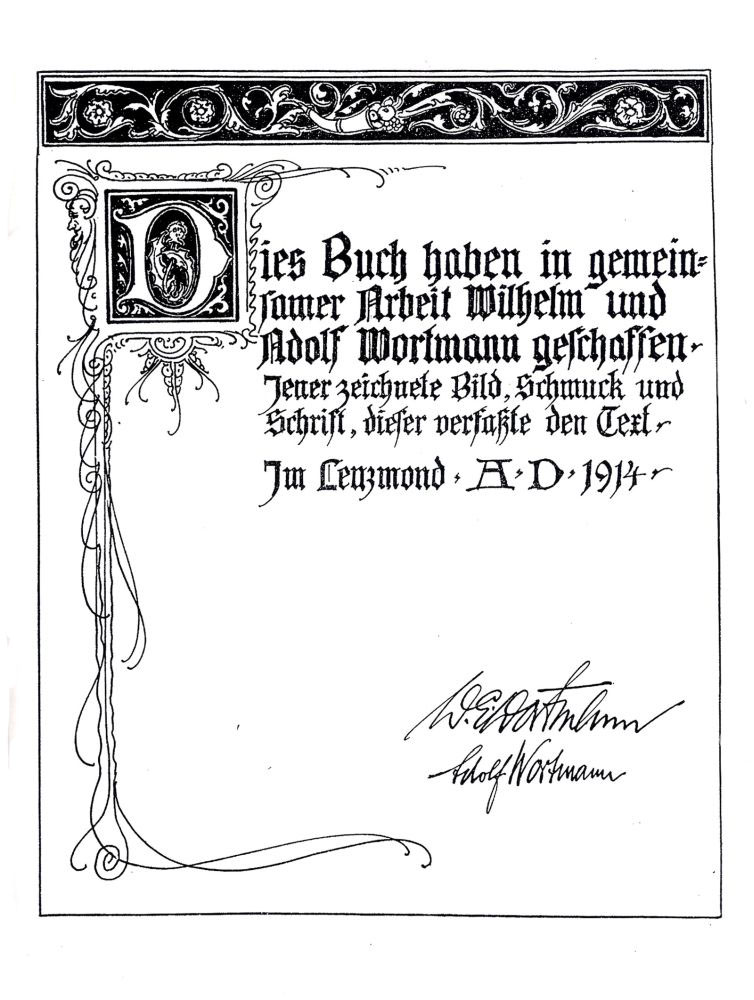 Dies Buch haben in gemein=
samer Arbeit Wilhelm und
Adolf Wortmann geschaffen.
Jener zeichnete Bild, Schmuck und
Schrift, dieser verfaßte den Text.
Im Lenzmond · A · D · 1914.
W. E. Wortmann
Adolf Wortmann